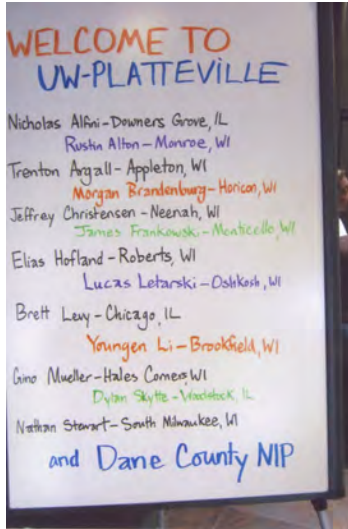 WELCOME TO
UW-PLATTEVILLE
Nicholas Alfini-Downers Grove, IL
Rustin Alton-Monroe, WI
Trenton Argall-Appleton, WI
Morgan Brandenburg-Horicon, WI
Jeffrey Christensen-Neenah, WI
James Frankowski-Monticello, WI
Elias Hofland-Roberts, WI
Lucas Letarski-Oshkosh, WI
Brett Levy-Chicago, IL
Youngen Li-Brookfield, WI
Gino Mueller-Hales Corners, WI
Dylan Skytte-Woodstock, IL
Nathan Stewart-South Milwaukee, WI
and Dane County NIP